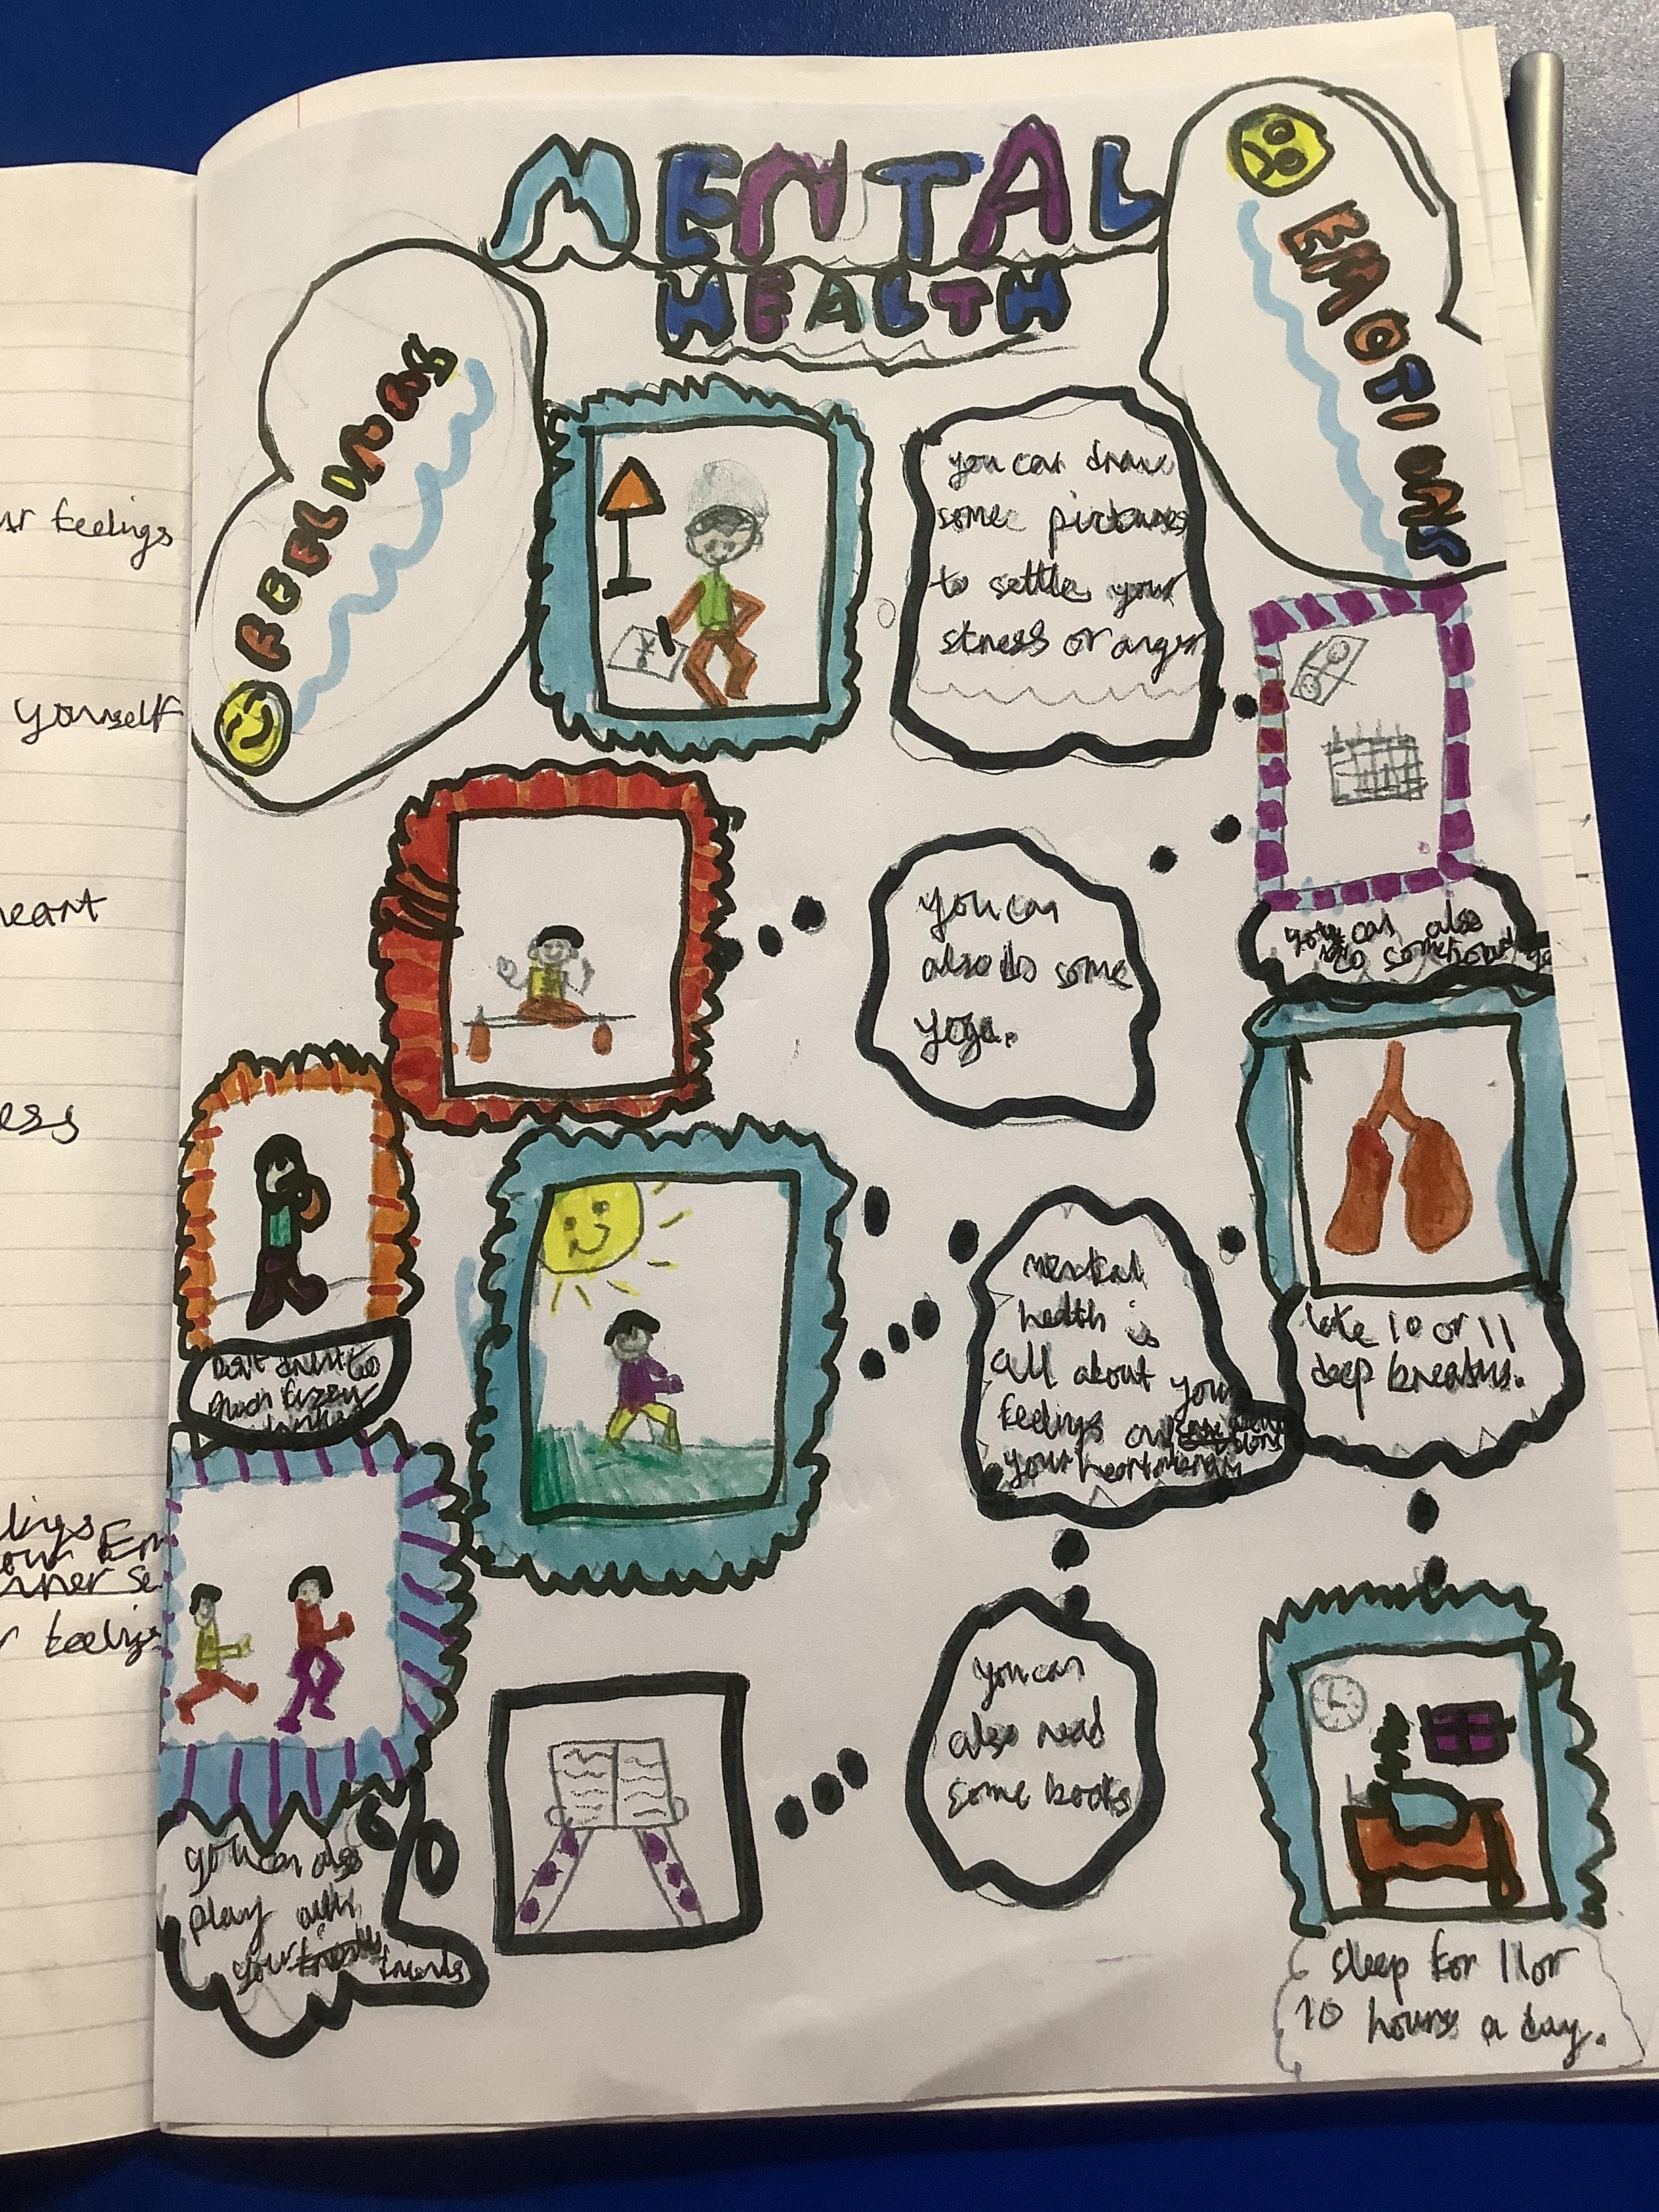 MENTAL
HEALTH
FEELINGS
EMOTIONS
you can draw
some pictures
to settle your
stress or anger
you can
also do some
yoga.
you can also
do some
mental
health is
all about your
feelings and
your heart
take 10 or 11
deep breaths.
Don't drink to
much fizzy
you can also
play with
your friends
you can
also read
some books
sleep for 11 or
10 hours a day.
ur feelings
yourself
heart
ess
lings
our Em
nner se
r feelings